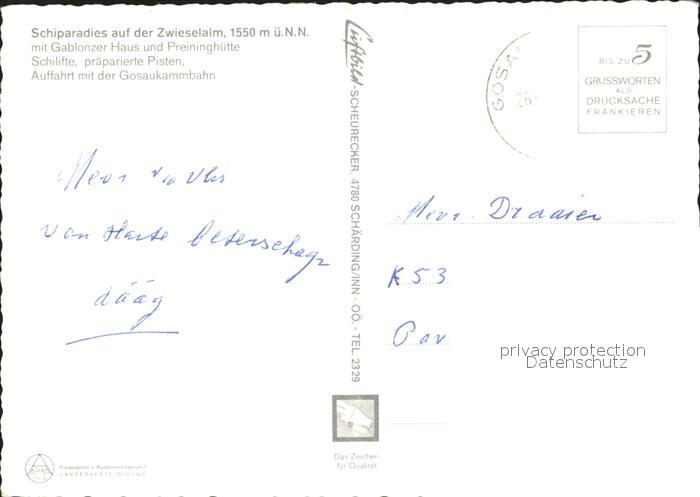 Schiparadies auf der Zwieselalm, 1550 m ü.N.N.
mit Gablonzer Haus und Preininghütte
Schilifte, präparierte Pisten,
Auffahrt mit der Gosaukammbahn
Luftbild-SCHEURECKER, 4780 SCHÄRDING/INN - OÖ. - TEL. 2329
GOSA
BIS ZU 5
GRUSSWORTEN
ALS
DRUCKSACHE
FRANKIEREN
van Harte beterschap
dáág
Draaier
K 53
Pav
privacy protection
Datenschutz
Das Zeichen
für Qualität
Freigegeben v. Bundesministerium f.
LANDESVERTEIDIGUNG